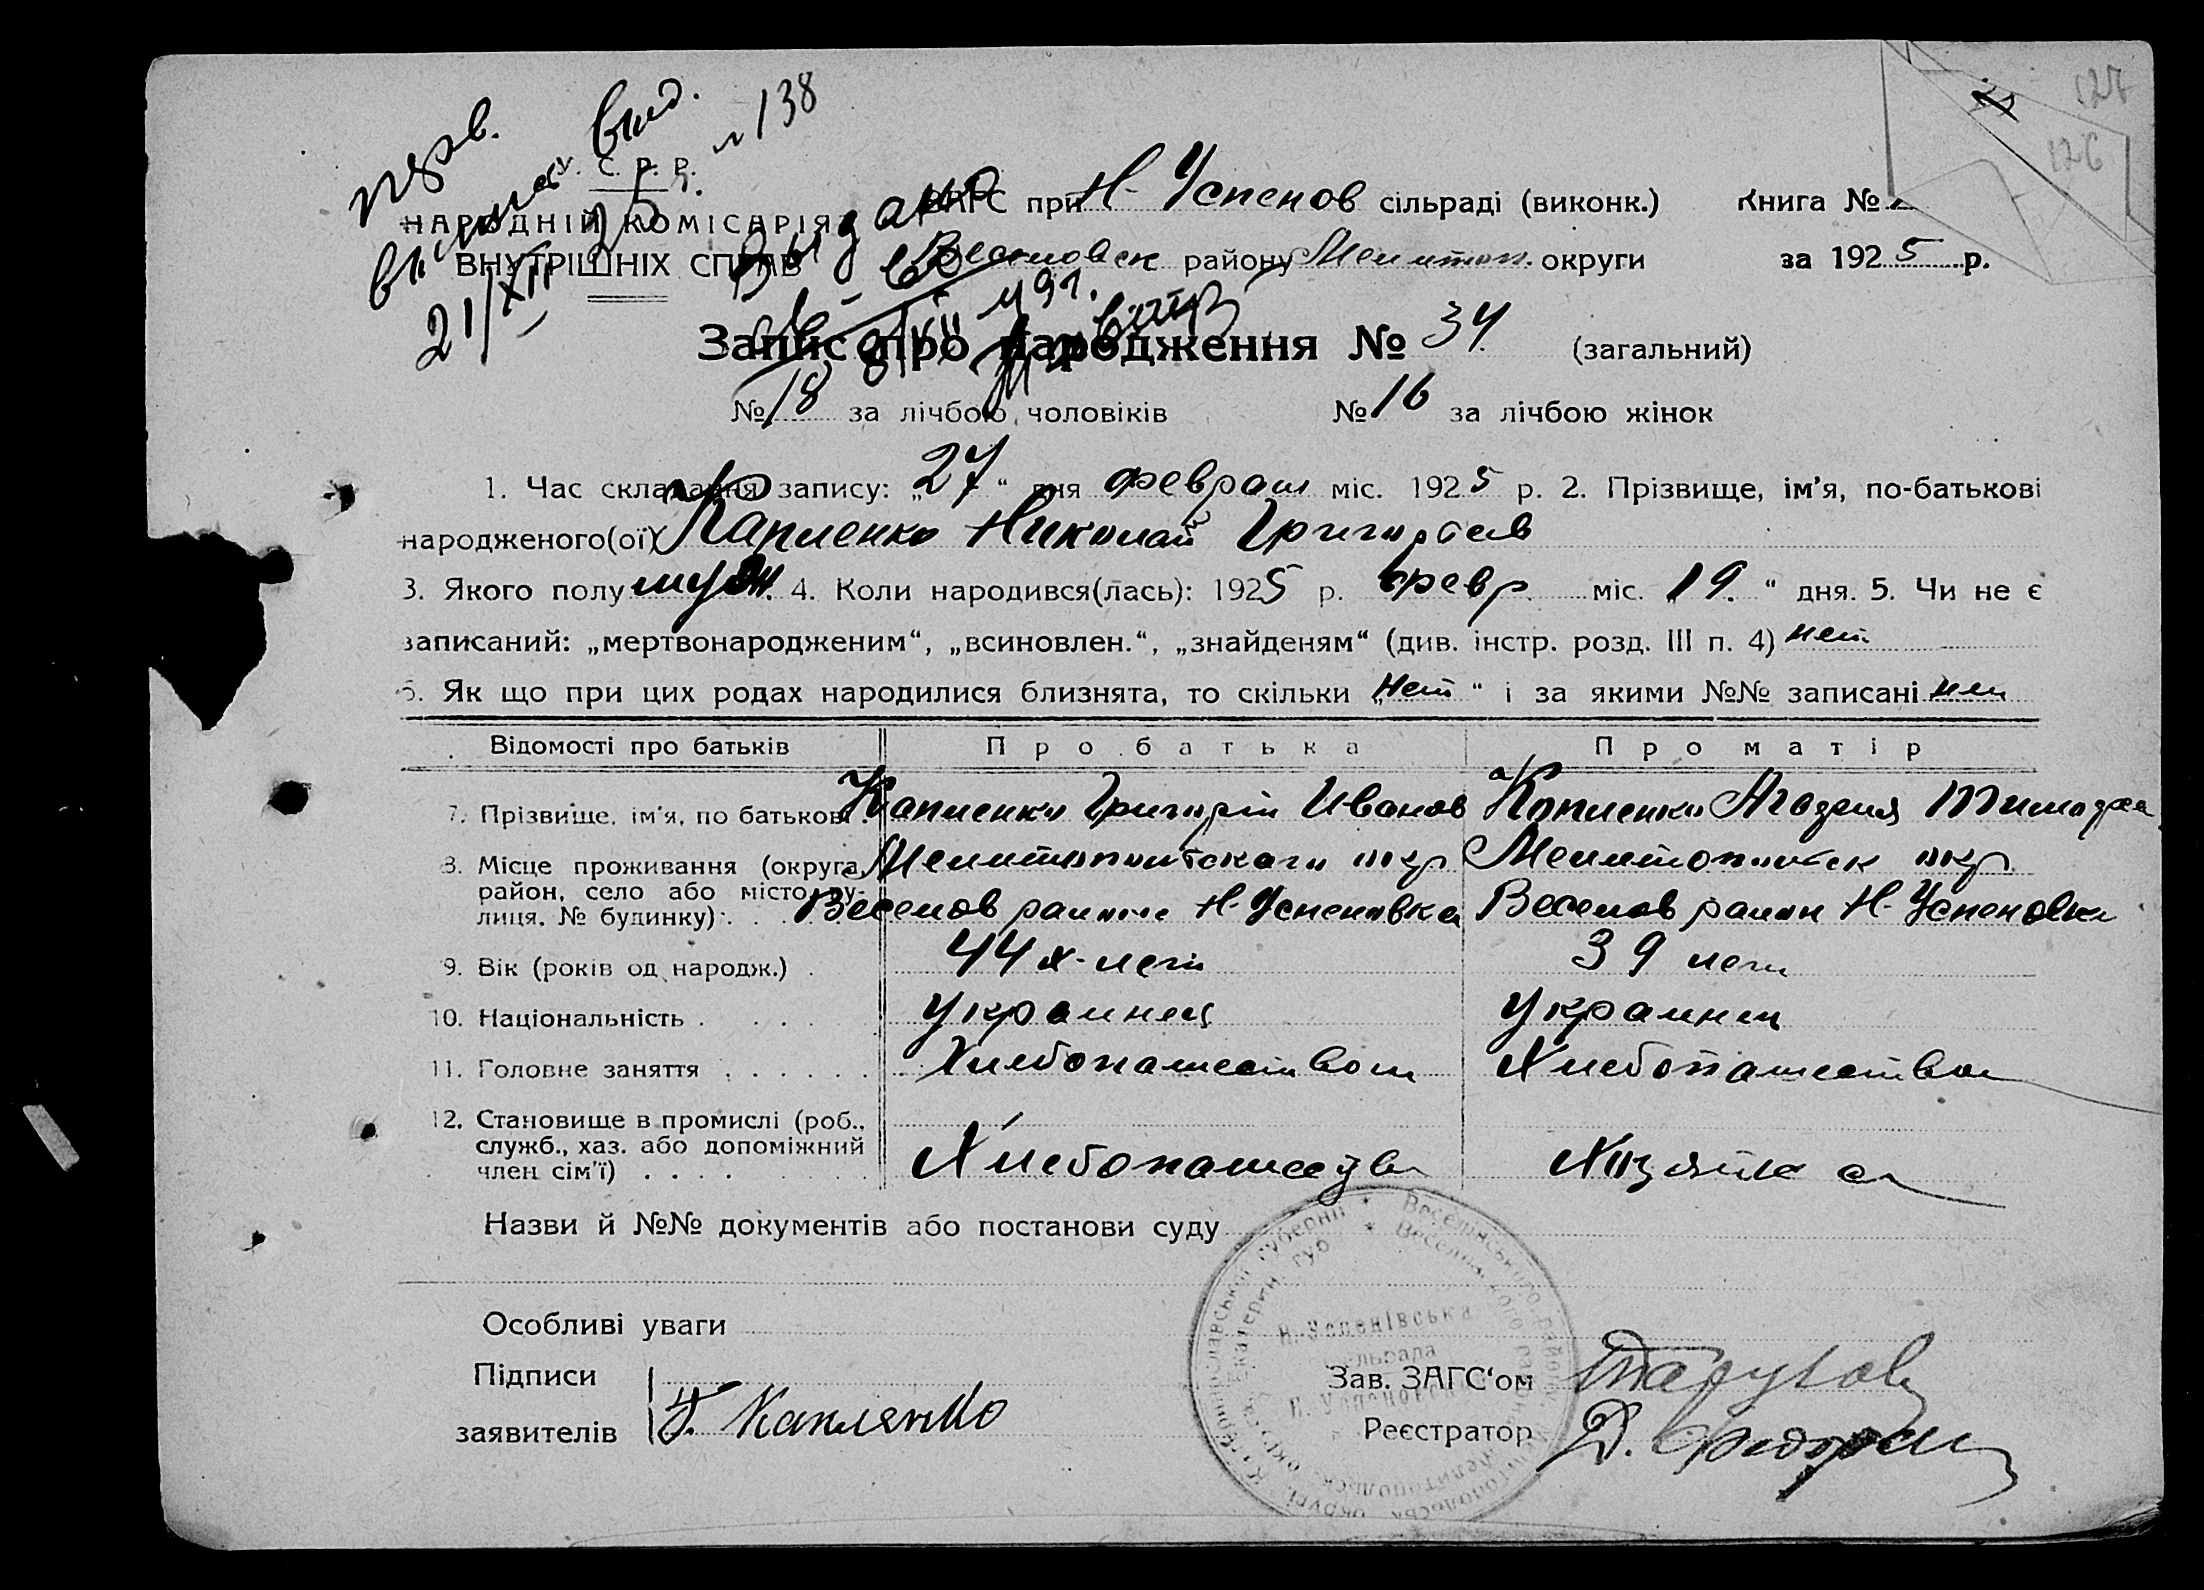 127
126
перв.
вид.
№ 138
С. Р. Р.
ЗАГС при Н-Успенов сільраді (виконк.) Книга №
НАРОДНІЙ КОМІСАРІЯ
ВНУТРІШНІХ СПРАВ
Выдано
району Мелитоп. округи за 1925 р.
21/XII
Запис про народження № 34 (загальний)
№ 18 за лічбою чоловіків № 16 за лічбою жінок
1. Час складання запису: „27“ дня феврал міс. 1925 р. 2. Прізвище, ім'я, по-батькові
народженого(ої) Капленко Николай Григорьев
3. Якого полу муж. 4. Коли народився(лась): 1925 р. февр. міс. „19.“ дня. 5. Чи не є
записаний: „мертвонародженим“, „всиновлен.“, „знайденям“ (див. інстр. розд. III п. 4) нет
6. Як що при цих родах народилися близнята, то скільки „нет“ і за якими №№ записані нет
Відомості про батьків Про батька Про матір
7. Прізвище, ім'я, по батькові Капленко Григорій Иванов Капленко Агафия
8. Місце проживання (округа, Мелитопольскаго окр Мелитопольск окр.
район, село або місто, ву- Веселов района Н-Успеновка Веселов район Н-Успеновка
лиця, № будинку)
9. Вік (років од народж.) 44 х-лет 39 лет
10. Національність украинец украинец
11. Головне заняття Хлебопашеством Хлебопашеством
12. Становище в промислі (роб.,
служб., хаз. або допоміжний Хозяйка
член сім'ї)
Назви й №№ документів або постанови суду
Особливі уваги
Н. Успенівська
сільрада
Підписи
Зав. ЗАГС'ом
заявителів Г. Каплянко
Реєстратор Д.